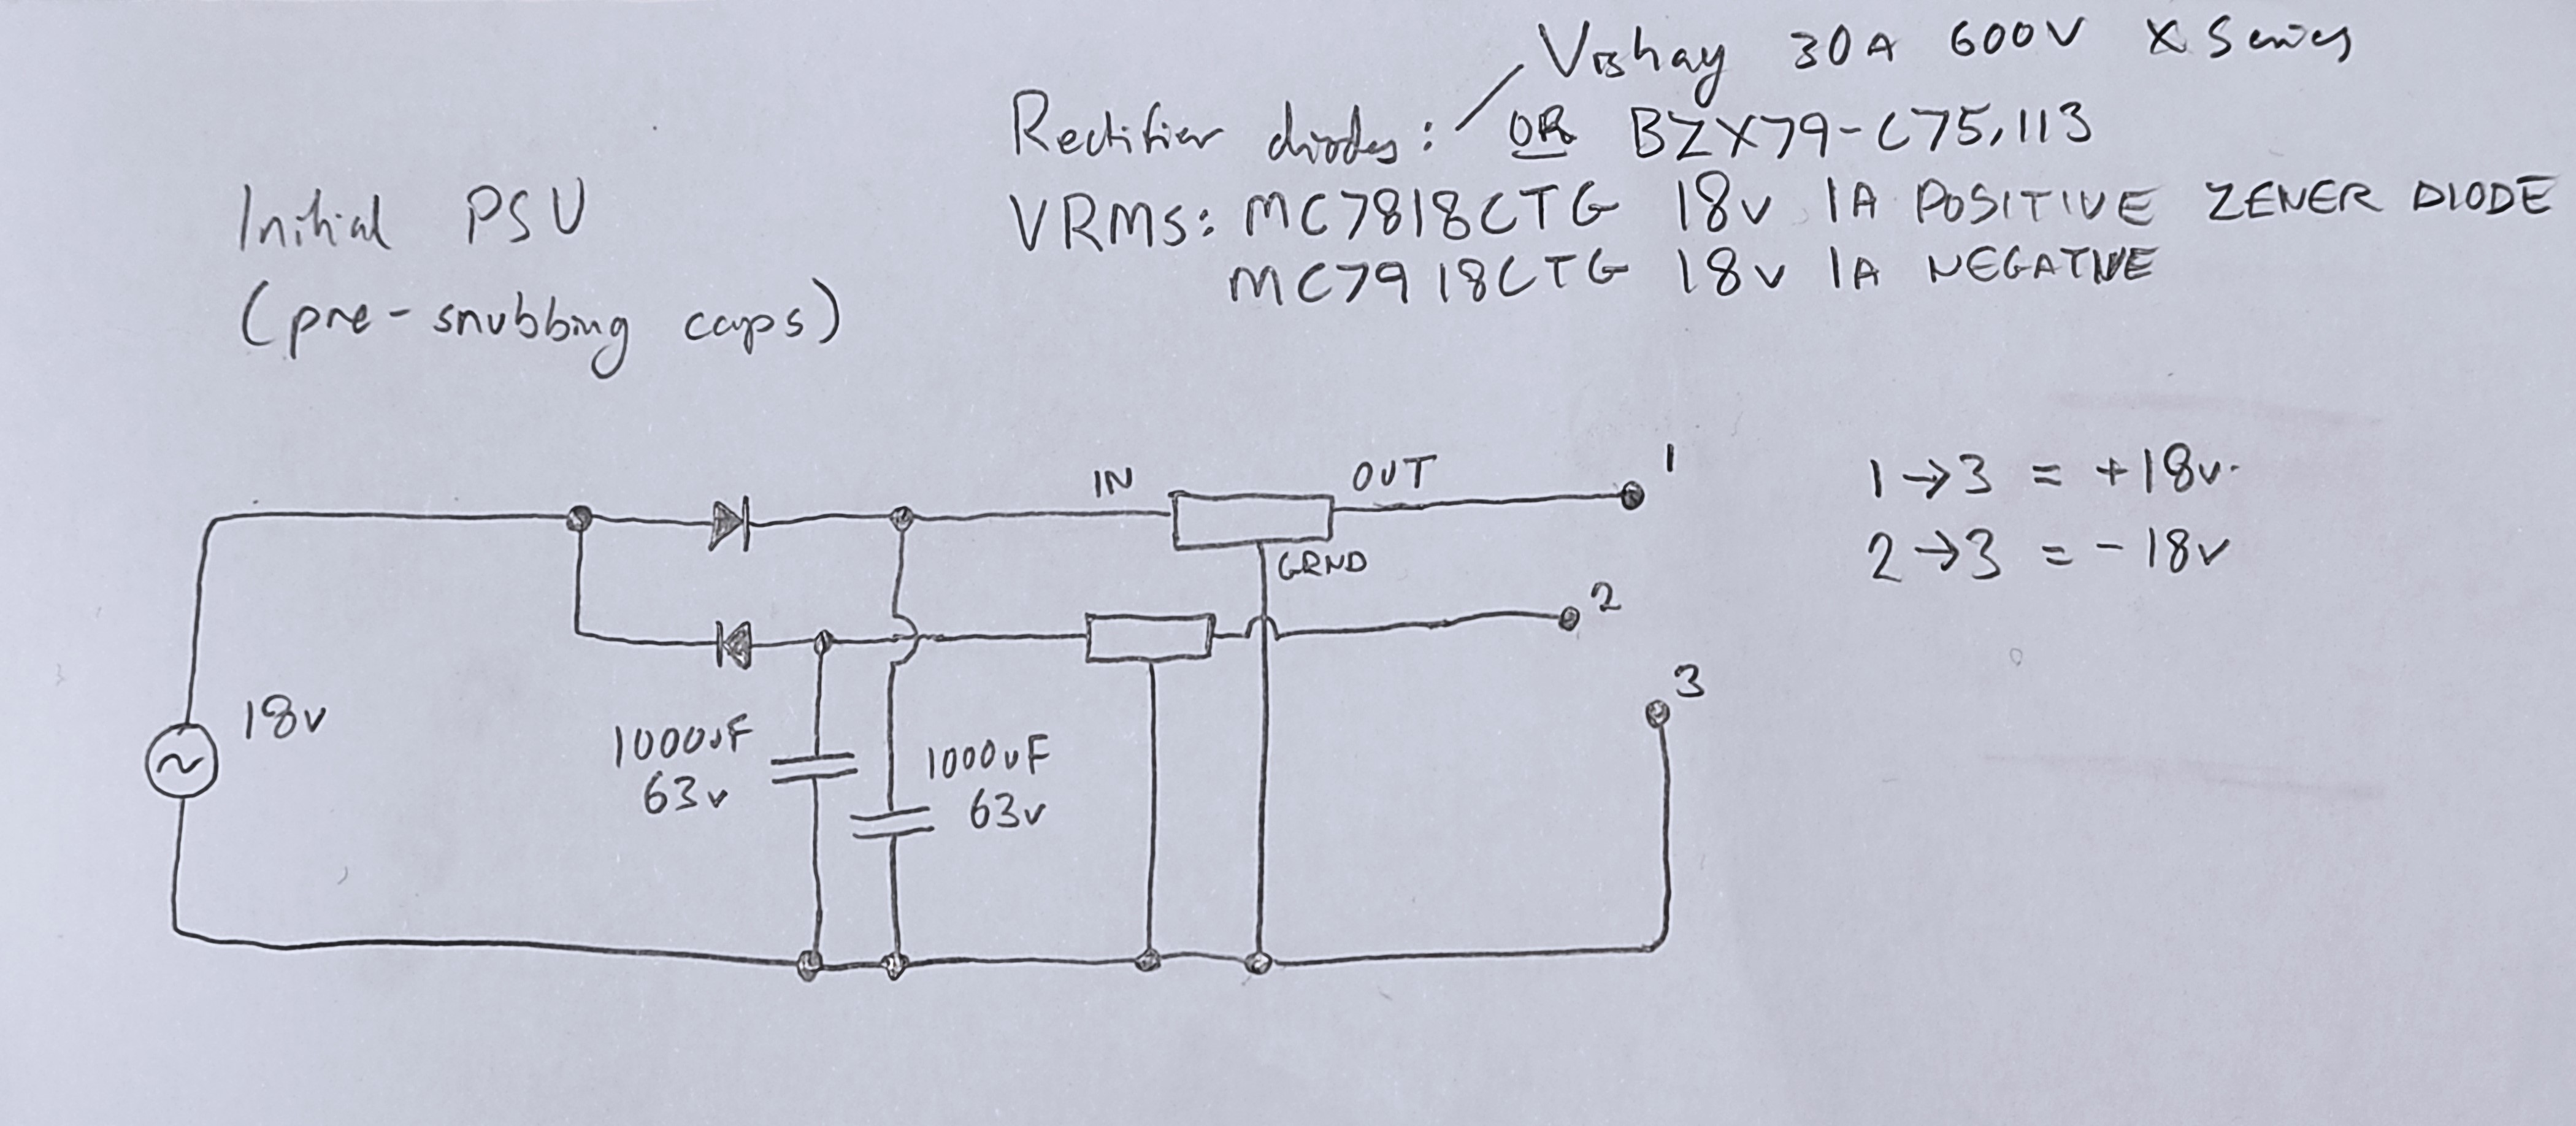 Vishay 30A 600V X Series
Rectifier diodes: OR BZX79-C75,113
Initial PSU
VRMS: MC7818CTG 18v 1A POSITIVE ZENER DIODE
MC7918CTG 18v 1A NEGATIVE
(pre-snubbing caps)
IN OUT 1
1→3 = +18v.
GRND
2→3 = -18v
2
3
18v
1000uF
63v
1000uF
63v